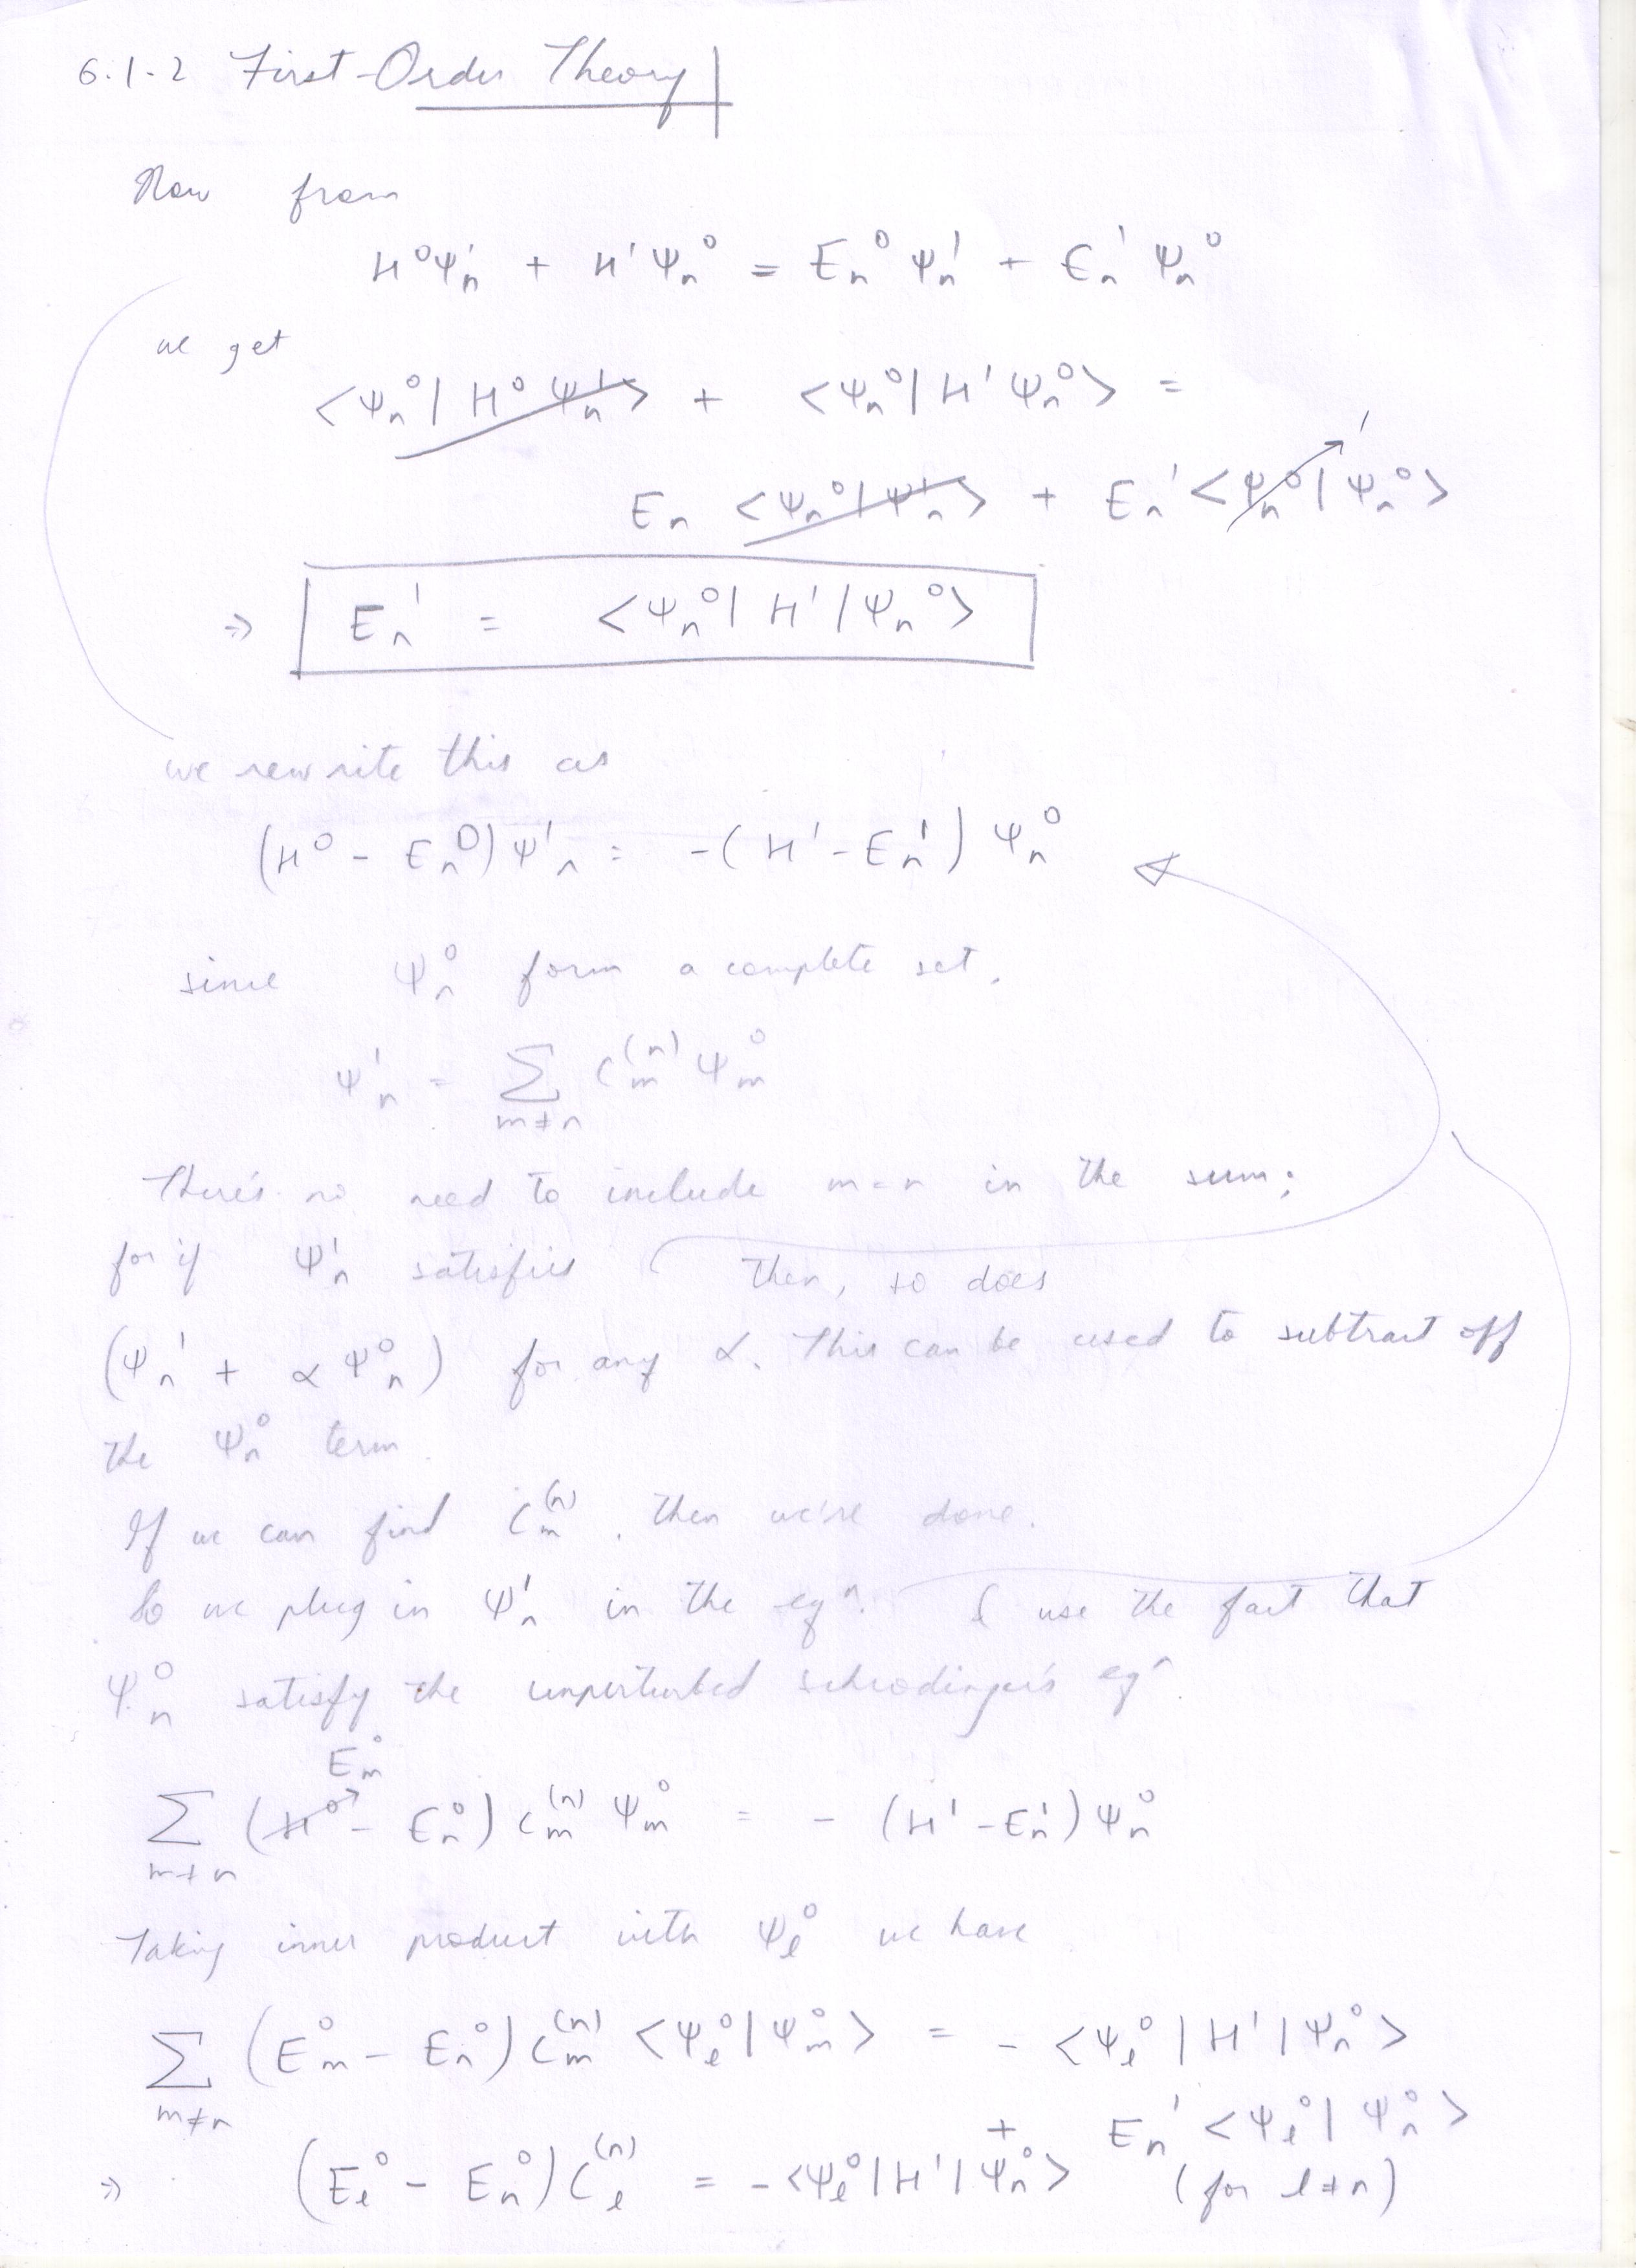 6.1-2 First-Order Theory
Now from
H⁰Ψₙ¹ + H'Ψₙ⁰ = Eₙ⁰ Ψₙ¹ + Eₙ¹ Ψₙ⁰
we get
<Ψₙ⁰| H⁰ Ψₙ¹> + <Ψₙ⁰| H' Ψₙ⁰> =
Eₙ <Ψₙ⁰|Ψₙ¹> + Eₙ¹ <Ψₙ⁰|Ψₙ⁰> 1
⇒ Eₙ¹ = <Ψₙ⁰| H' |Ψₙ⁰>
we rewrite this as
(H⁰ - Eₙ⁰) Ψₙ¹ = -(H' - Eₙ¹) Ψₙ⁰
since Ψₙ⁰ form a complete set,
Ψₙ¹ = Σ_{m≠n} Cₘ⁽ⁿ⁾ Ψₘ⁰
There's no need to include m=n in the sum;
for if Ψₙ¹ satisfies then, so does
(Ψₙ¹ + αΨₙ⁰) for any α. This can be used to subtract off
the Ψₙ⁰ term.
If we can find Cₘ⁽ⁿ⁾, then we're done.
So we plug in Ψₙ¹ in the eqⁿ. & use the fact that
Ψₙ⁰ satisfy the unperturbed schrodinger's eqⁿ.
Eₘ⁰
Σ_{m≠n} (H⁰ - Eₙ⁰) Cₘ⁽ⁿ⁾ Ψₘ⁰ = - (H' - Eₙ¹) Ψₙ⁰
Taking inner product with Ψₗ⁰ we have
Σ_{m≠n} (Eₘ⁰ - Eₙ⁰) Cₘ⁽ⁿ⁾ <Ψₗ⁰|Ψₘ⁰> = - <Ψₗ⁰| H' |Ψₙ⁰>
+ Eₙ¹ <Ψₗ⁰|Ψₙ⁰>
⇒ (Eₗ⁰ - Eₙ⁰) Cₗ⁽ⁿ⁾ = - <Ψₗ⁰| H' |Ψₙ⁰> (for l≠n)